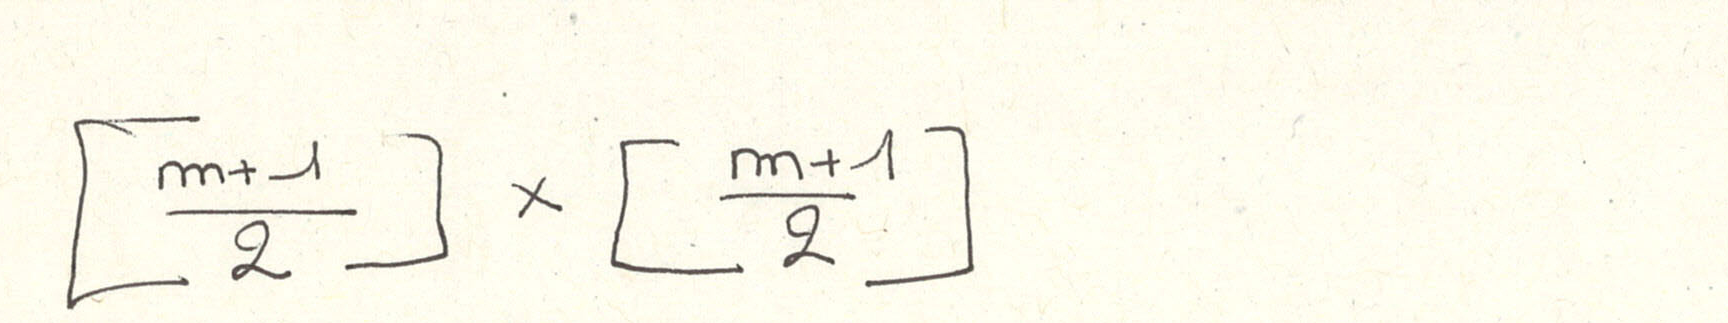 [ (m+1)/2 ] × [ (m+1)/2 ]